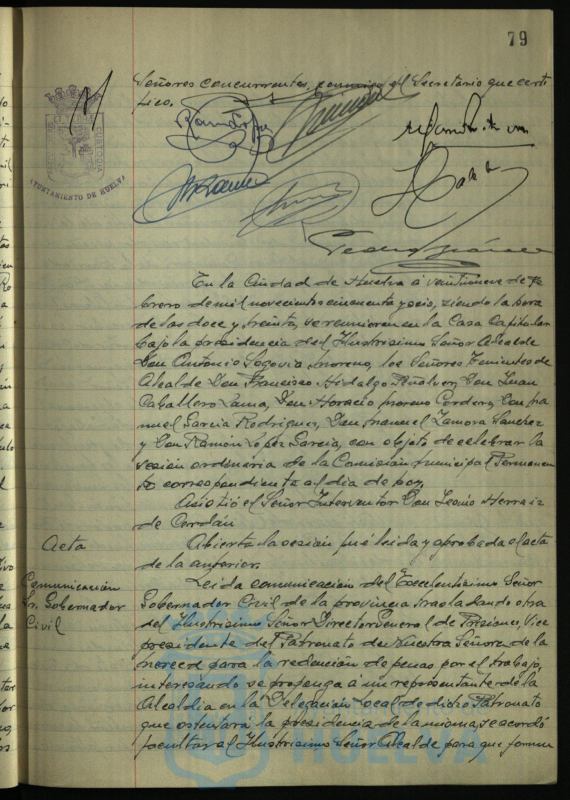 79
Señores concurrentes, conmigo el Secretario que certi
fico.
AYUNTAMIENTO DE HUELVA
En la Ciudad de Huelva á veintinueve de Fe
brero de mil novecientos cincuenta y seis, siendo la hora
de las doce y treinta, se reunieron en la Casa Capitular
bajo la presidencia del Ilustrisimo Señor Alcalde
Don Antonio Segovia Moreno, los Señores Tenientes de
Alcalde Don Francisco Hidalgo Peñalver, Don Juan
Caballero Luna, Don Horacio Moreno Cordero, Don Ma
nuel Garcia Rodriguez, Don Manuel Zamora Sanchez
y Don Ramón Lopez Garcia, con objeto de celebrar la
sesión ordinaria de la Comisión Municipal Permanen
te correspondiente al dia de hoy.
Asistió el Señor Interventor Don Leonio Herraiz
de Cerdán
Acta
Abierta la sesión fué leida y aprobada el acta
de la anterior.
Comunicación
Sr. Gobernador
Civil
Leida comunicación del Excelentisimo Señor
Gobernador Civil de la provincia trasladando otra
del Ilustrisimo Señor Director General de Prisiones, Vice
presidente del Patronato de Nuestra Señora de la
Merced para la redención de penas por el trabajo,
interesando se proponga á un representante de la
Alcaldia en la Delegación Local de dicho Patronato
que ostentará la presidencia de la misma, se acordó
facultar al Ilustrisimo Señor Alcalde para que formu
HUELVA